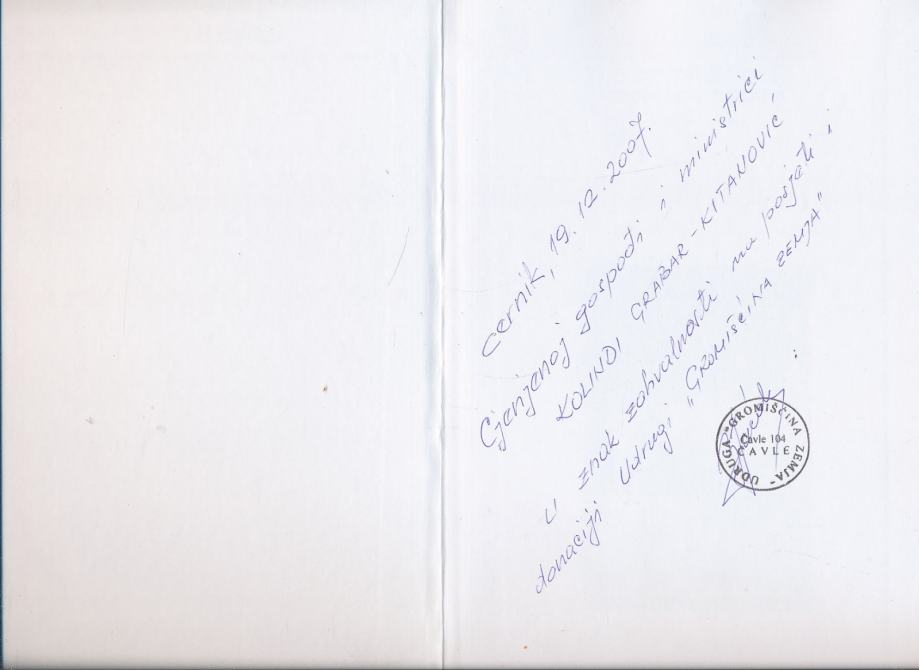 Cernik, 19.12.2007.
Cjenjenoj gospođi i ministrici
KOLINDI GRABAR-KITANOVIĆ,
U znak zahvalnosti na posjeti i
donaciji Udrugi „GROMIŠĆINA ZEMJA"
UDRUGA "GROMIŠĆINA ZEMJA"
Cavle 104
ČAVLE